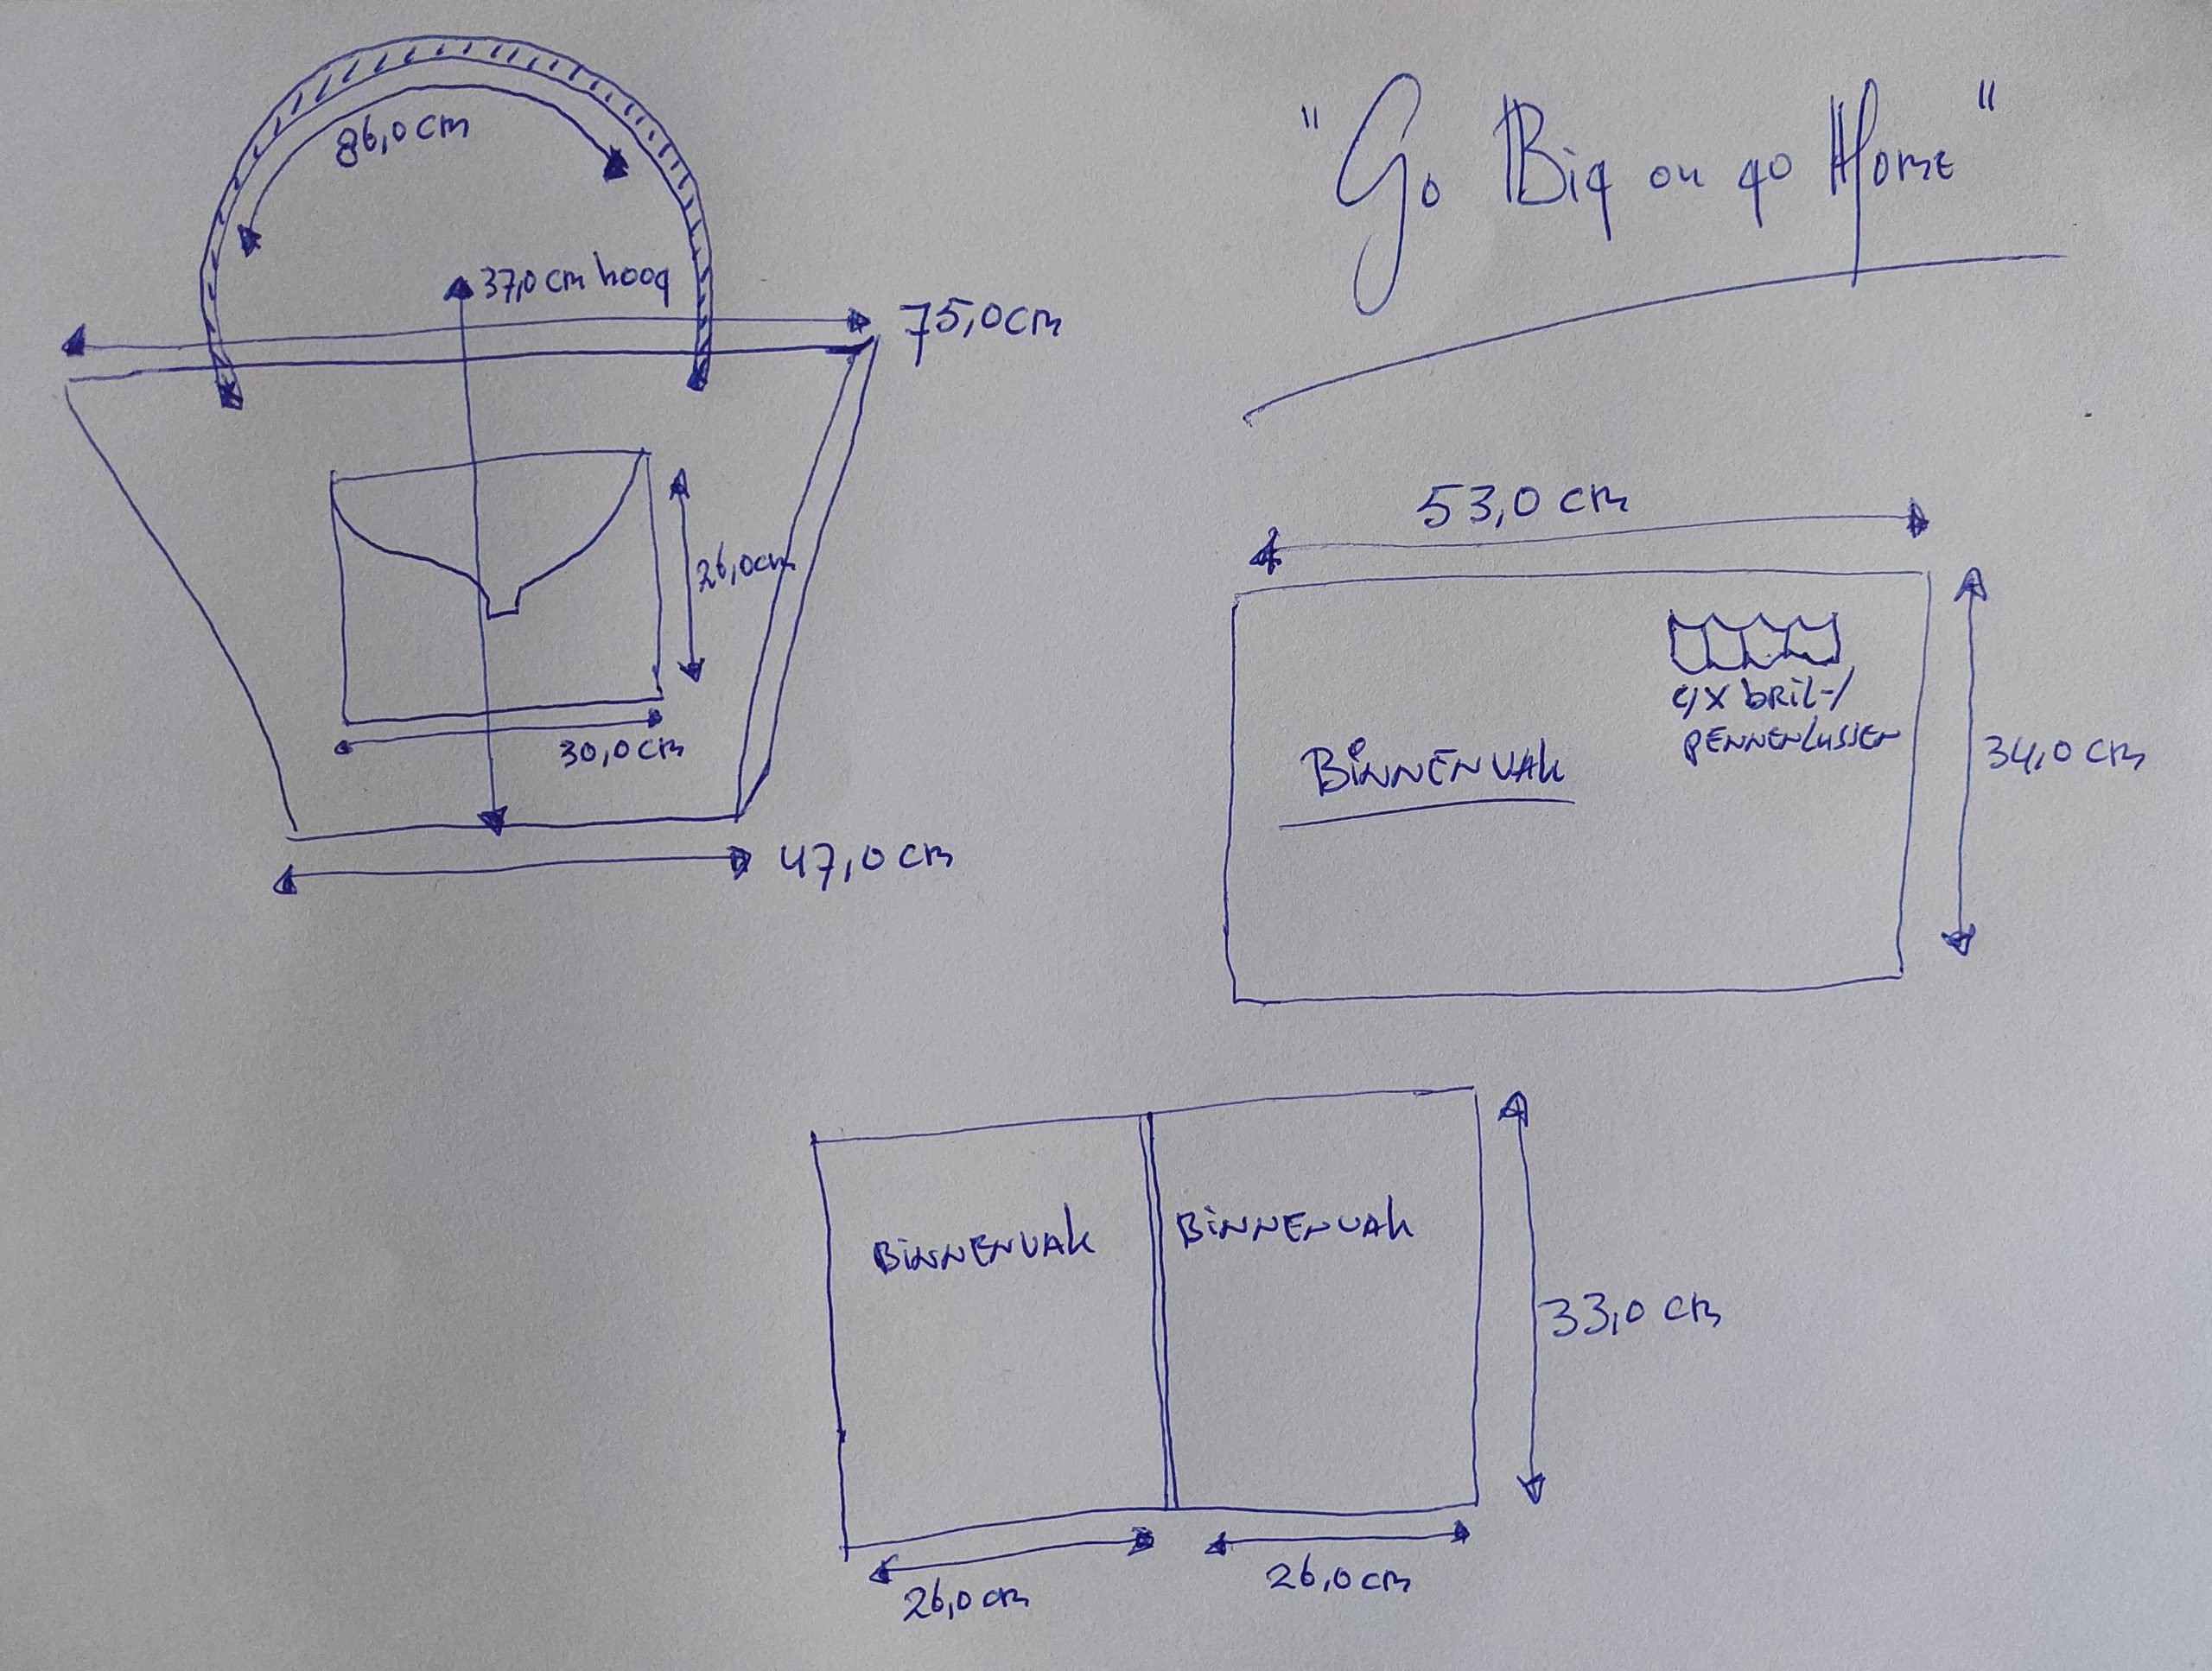 "Go Big or go Home"
86,0 cm
37,0 cm hoog
75,0 cm
26,0 cm
30,0 cm
47,0 cm
53,0 cm
4x bril-/
pennenlussen
BINNENVAK
34,0 cm
BINNENVAK
BINNENVAK
33,0 cm
26,0 cm
26,0 cm